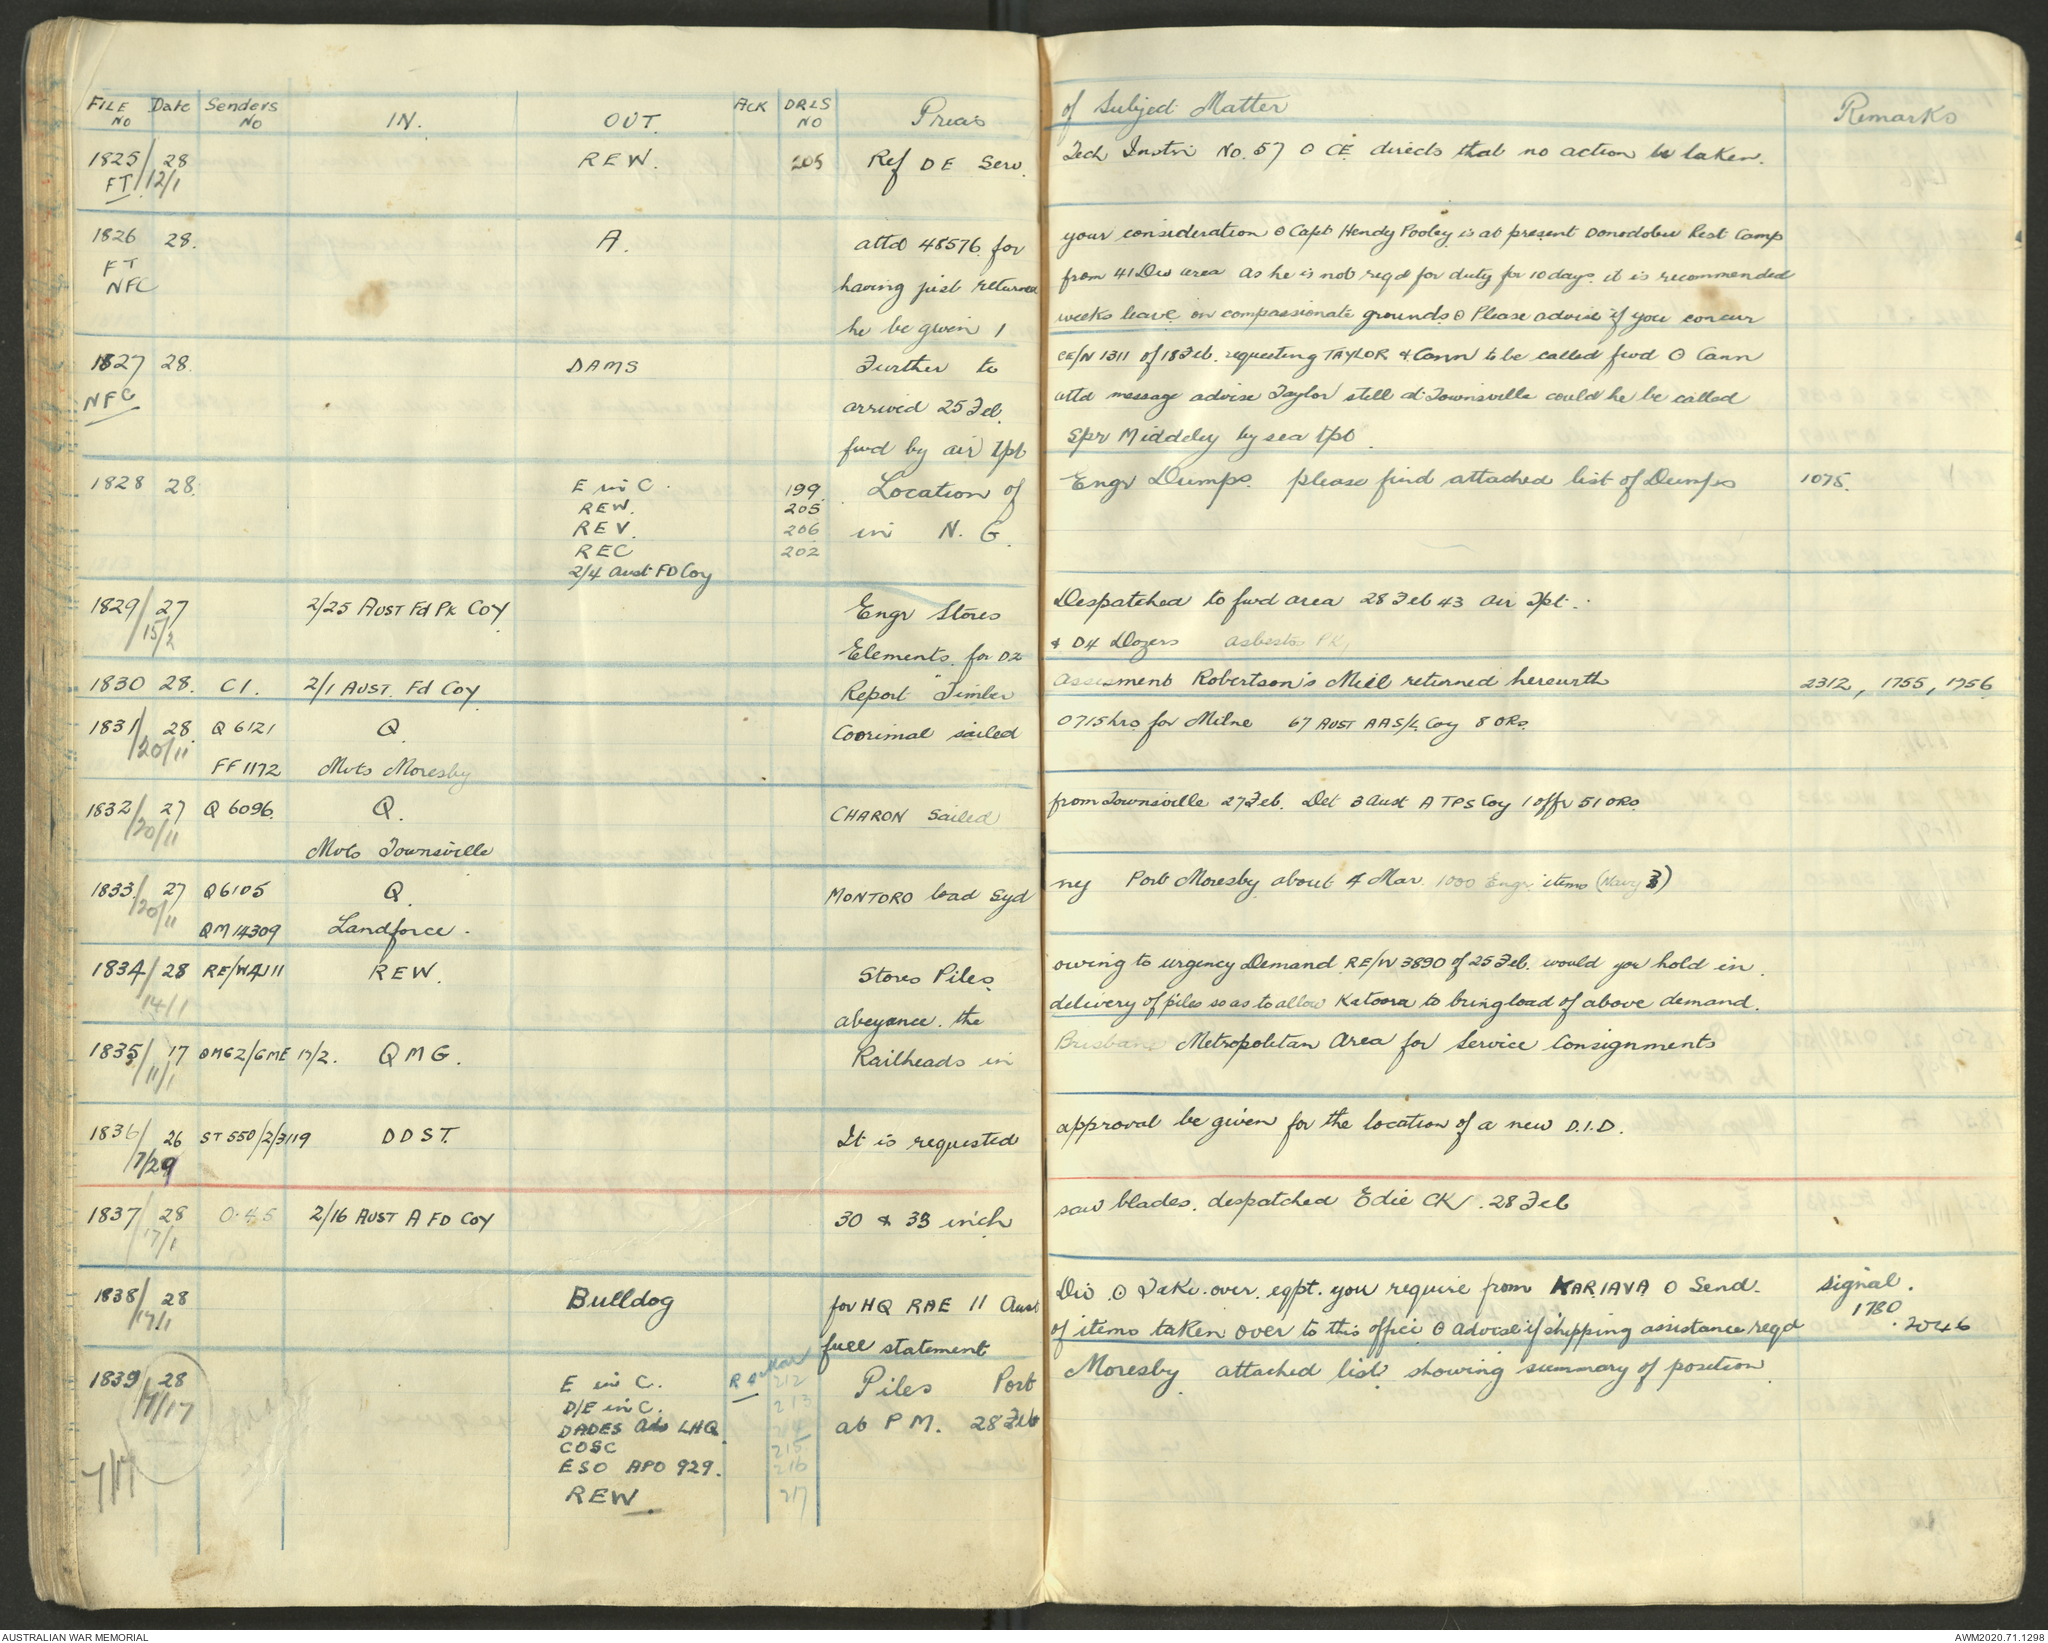 FILE NO Date Senders No IN. OUT. ACK DRLS NO Precis of Subject Matter Remarks
1825/ 28 REW. 205 Ref DE Serv. Tech Instn No. 57 O CE directs that no action be taken.
FT /12/1
1826 28. A. attd 48576 for your consideration O Capt Hendy Pooley is at present Donodobu Rest Camp
FT
NFC having just returned from 41 Div area As he is not reqd for duty for 10 days. it is recommended
he be given 1 weeks leave on compassionate grounds O Please advise if you concur
1827 28. DAMS Further to CE/N 1311 of 18 Feb. requesting TAYLOR & Cann to be called fwd O Cann
NFC arrived 25 Feb. attd message advise Taylor still at Townsville could he be called
fwd by air tpt Spr Middeley by sea tpt.
1828 28. E in C. 199. Location of Engr Dumps. please find attached list of Dumps 1075.
REW. 205
REV. 206 in N. G.
REC 202
2/4 Aust FD Coy
1829/ 27 2/25 AUST Fd PK COY Engr Stores Despatched to fwd area 28 Feb 43 air Tpt.
/15/2 Elements. for D2 & D4 Dozers asbestos PK,
1830 28. C1. 2/1 AUST. Fd COY Report "Timber assesment Robertson's Mill returned herewith 2312, 1755, 1756
1831/ 28. Q 6121 Q. Coorimal sailed 0715 hrs for Milne 67 AUST AA S/L Coy 8 ORs.
/20/11 FF 1172 Mvts Moresby
1832/ 27 Q 6096. Q. CHARON sailed from Townsville 27 Feb. Det 3 Aust A TPS Coy 1 offr 51 ORs.
/20/11 Mvts Townsville
1833/ 27 Q 6105 Q. MONTORO load Syd ney Port Moresby about 4 Mar. 1000 Engr items (Navy 3)
/20/11 QM 14309 Landforce.
1834/ 28 RE/W4111 REW. Stores Piles. owing to urgency Demand RE/W 3890 of 25 Feb. would you hold in
/14/1 abeyance. the delivery of piles so as to allow Katoora to bring load of above demand.
1835/ 17 QMG2/GME 17/2. QMG. Railheads in Brisbane Metropolitan Area for Service Consignments
/11/1
1836/ 26 ST 550/2/3119 DDST. It is requested approval be given for the location of a new D.I.D.
/7/29
1837/ 28 0.45 2/16 AUST A FD COY 30 & 33 inch saw blades. despatched Edie CK. 28 Feb
/17/1
1838/ 28 Bulldog for HQ RAE 11 Aust Div. O Take. over. eqpt. you require from KARIAVA O Send. signal.
/17/1 1780
full statement of items taken over to this office O advise if shipping assistance reqd . 2046
1839/ 28 E in C. 212 Piles Port Moresby attached list showing summary of position
/17/17 D/E in C. 213
DADES Adv LHQ. 214 at PM. 28 Feb
COSC 215
7/17 ESO APO 929. 216
REW. 217
AUSTRALIAN WAR MEMORIAL AWM2020.71.1298